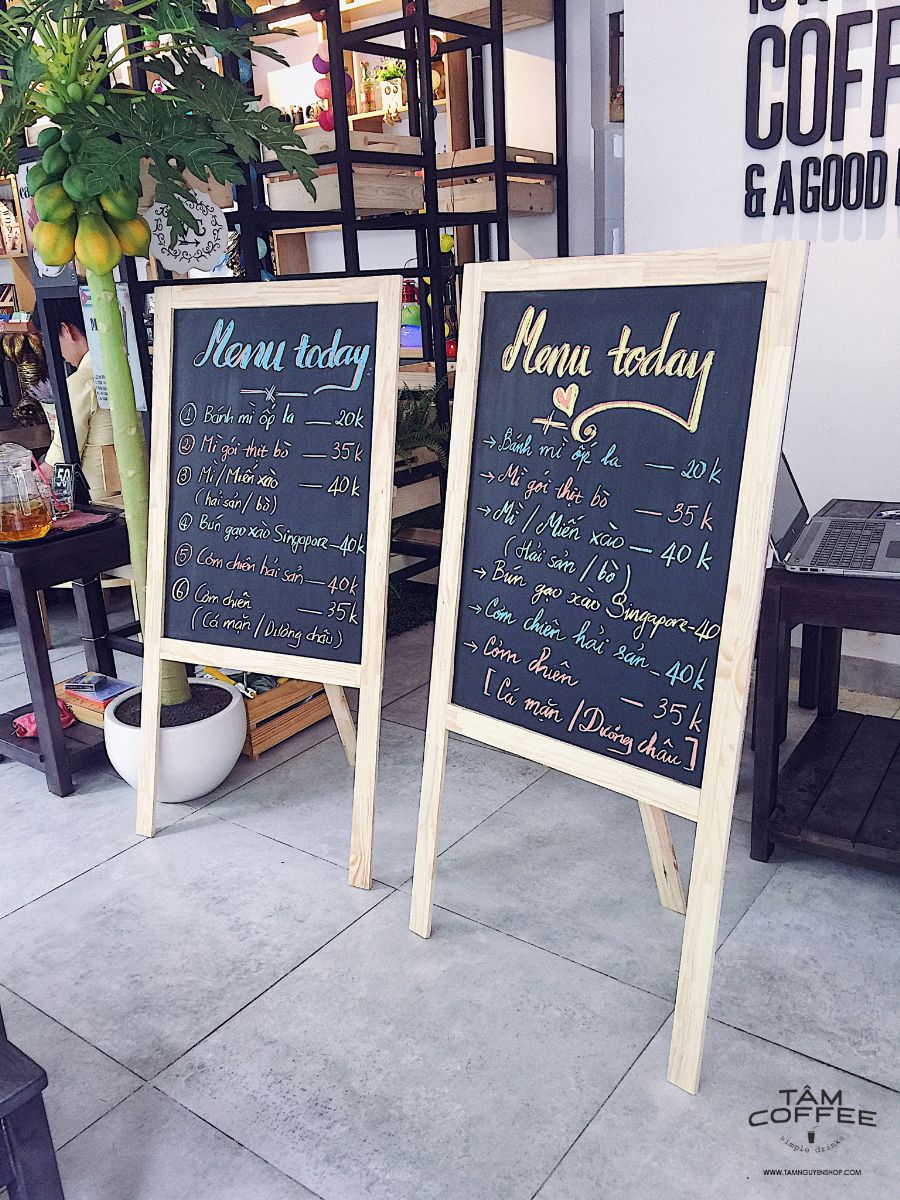 COFF
& A GOOD
Menu today
① Bánh mì ốp la — 20k
② Mì gói thịt bò — 35k
③ Mì / Miến xào — 40k
(hải sản / bò)
④ Bún gạo xào Singapore – 40k
⑤ Cơm chiên hải sản — 40k
⑥ Cơm chiên — 35k
(Cá mặn / Dưỡng châu)
Menu today
→ Bánh mì ốp la — 20k
→ Mì gói thịt bò — 35k
→ Mì / Miến xào — 40k
(Hải sản / bò)
→ Bún gạo xào Singapore – 40
→ Cơm chiên hải sản – 40k
→ Cơm chiên — 35k
[Cá mặn / Dưỡng châu]
50
TÂM
COFFEE
simple drinks
WWW.TAMNGUYENSHOP.COM